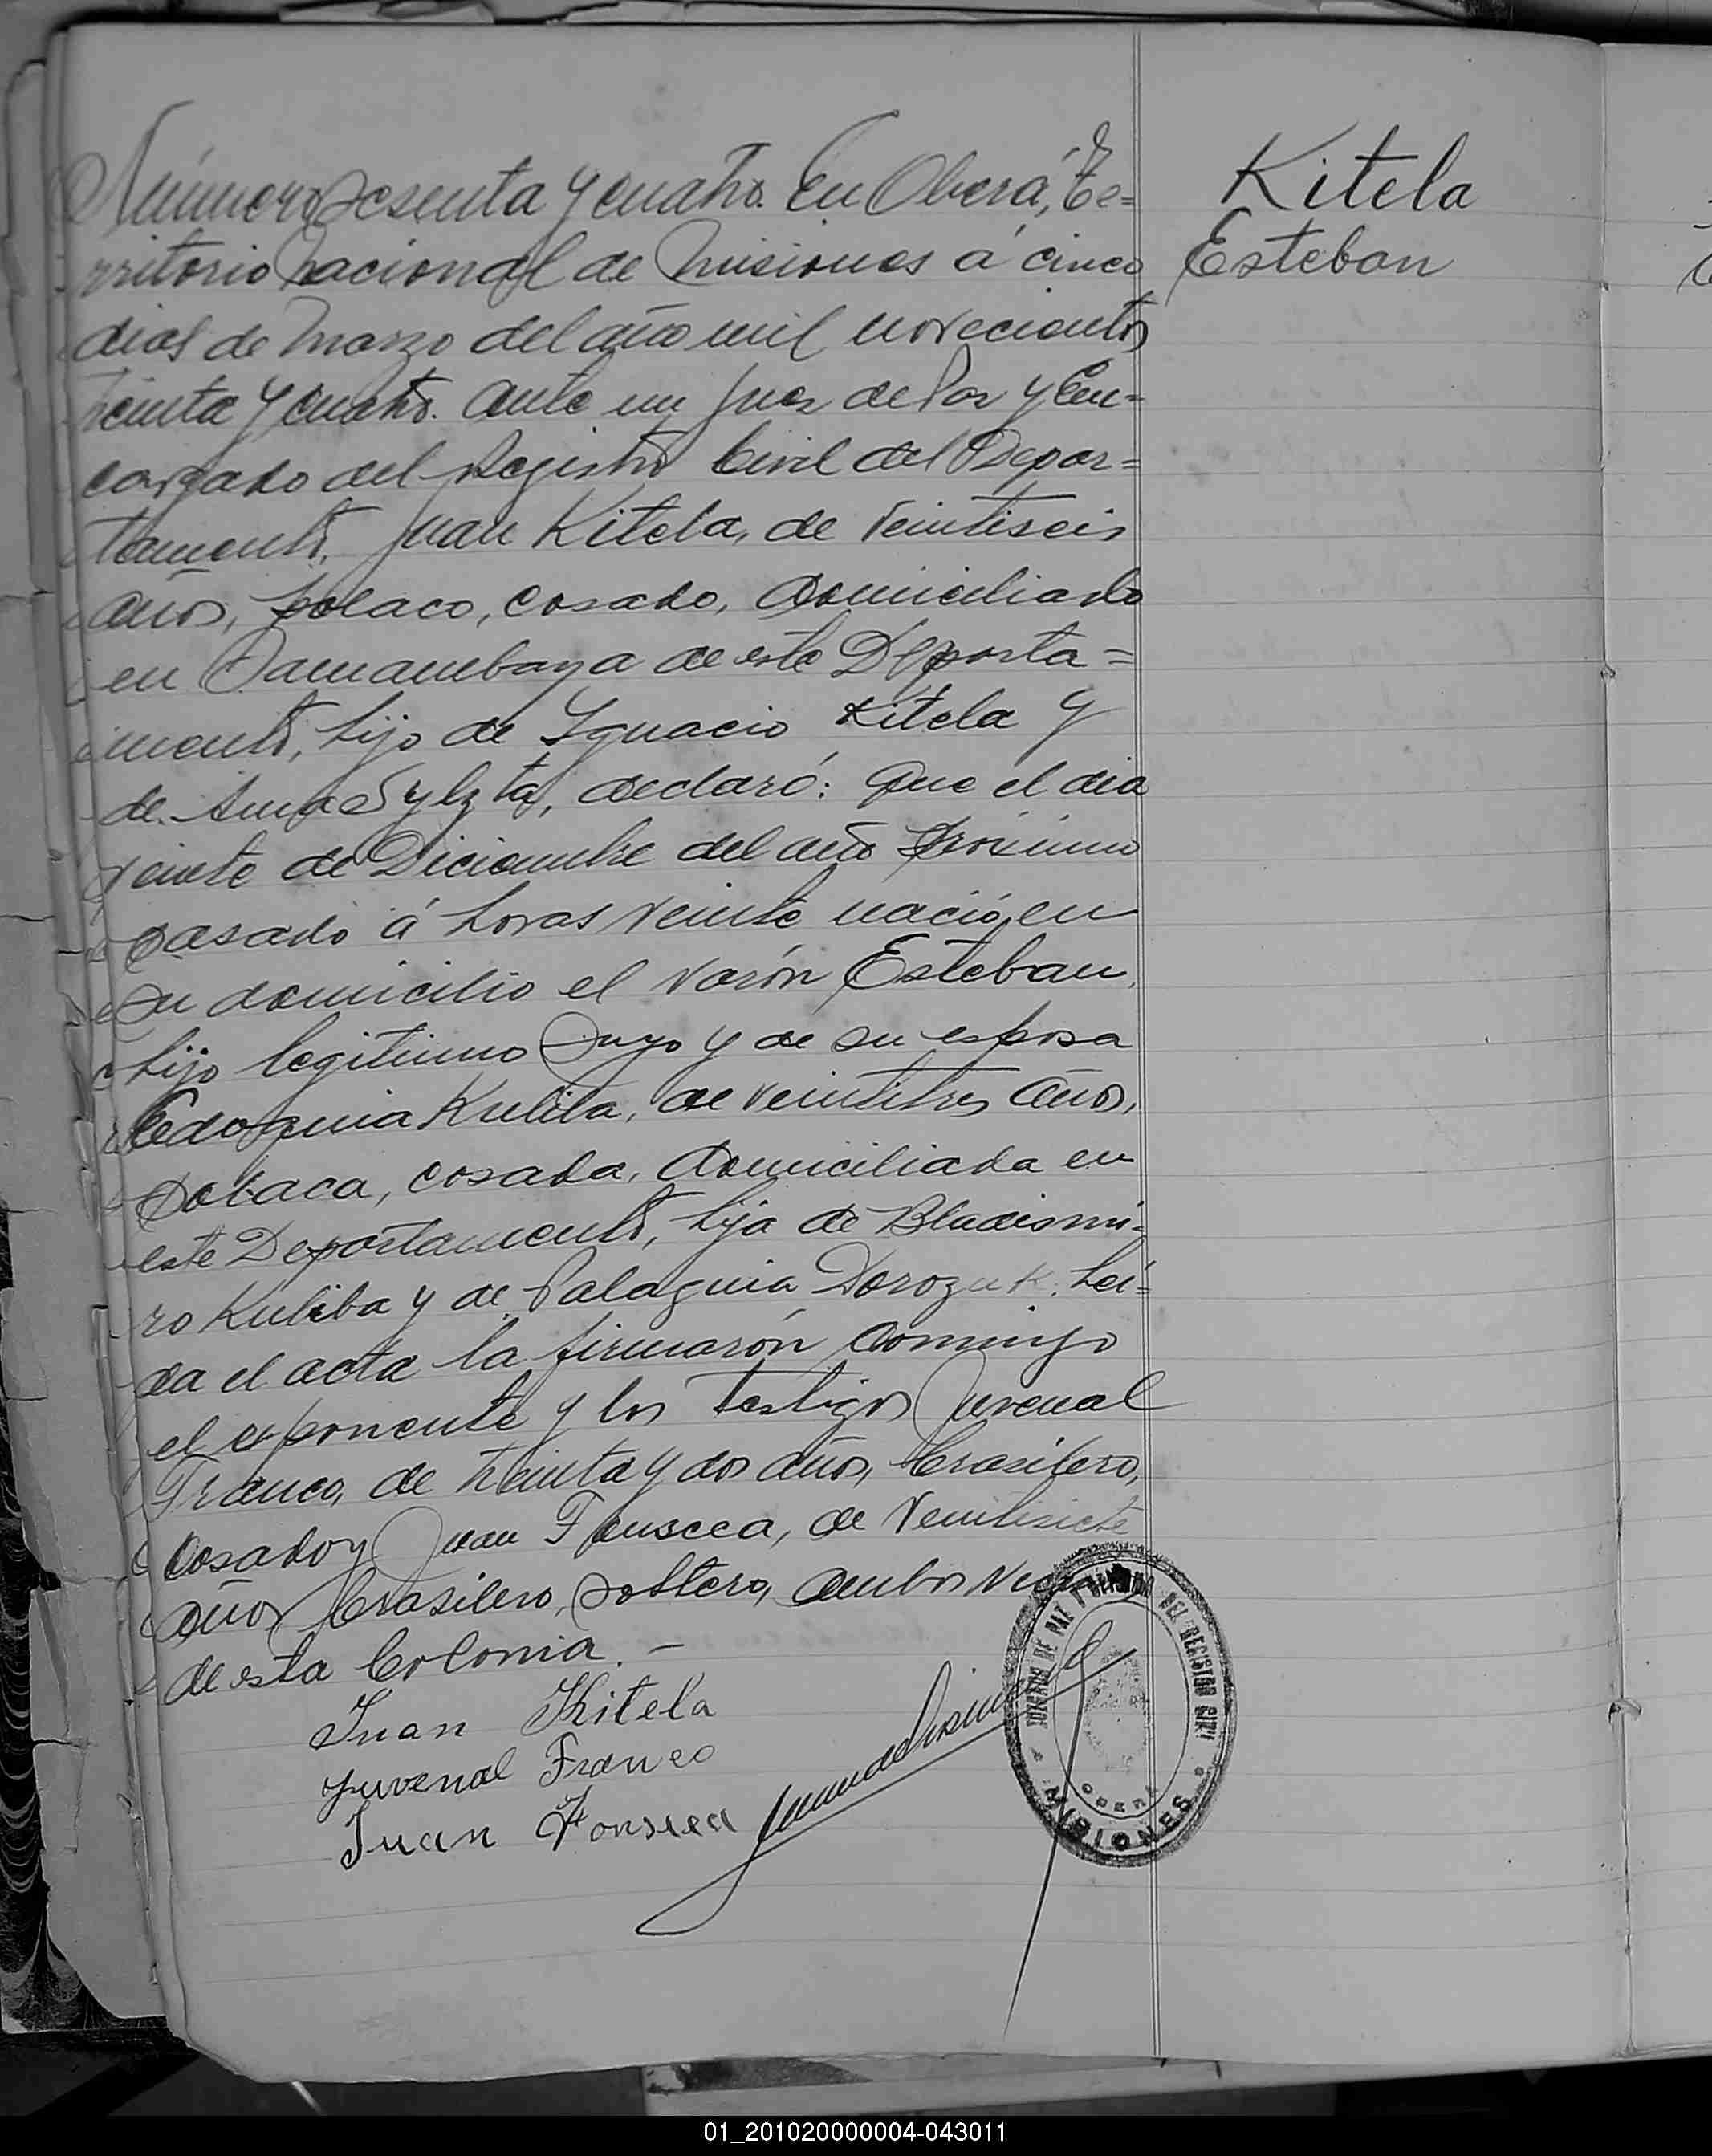 Número sesenta y cuatro. En Oberá, Te=
rritorio Nacional de Misiones á cinco
dias de Marzo del año mil novecientos
treinta y cuatro. Ante mi Juez de Paz y En=
cargado del Registro Civil del Depar=
tamento, Juan Kitela, de veintiseis
años, polaco, casado, domiciliado
en Samambaya de este Departa=
mento, hijo de Ignacio Kitela y
de Ana declaró: Que el dia
veinte de Diciembre del año próximo
pasado á horas veinte nació en
su domicilio el varón Esteban,
hijo legitimo suyo y de su esposa
de veintitres años,
polaca, casada, domiciliada en
este Departamento, hija de Bladismi=
ro Kuliba y de Palaguia Dorozuk. Lei=
da el acta la firmarón conmigo
el exponente y los testigos Juvenal
Franco, de treinta y dos años, brasilero,
casado y Juan Fonseca, de veintisiete
años, brasilero, soltero, ambos
de esta Colonia. —
Juan Kitela
Juvenal Franco
Juan Fonseca
Kitela
Esteban
JUZGADO DE PAZ DEL REGISTRO CIVIL
OBERÁ
MISIONES
01_201020000004-043011